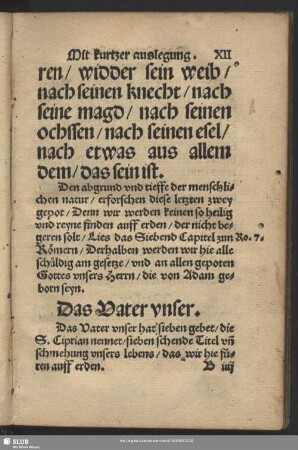 Mit kurtzer auslegung. XII
ren/ widder sein weib/
nach seinen knecht/ nach
seine magd/ nach seinen
ochssen/ nach seinen esel/
nach etwas aus allem
dem/ das sein ist.
Den abgrund vnd tieffe der menschli-
chen natur/ erforschen diese letzten zwey
gepot/ Denn wir werden keinen so heilig
vnd reyne finden auff erden/ der nicht be-
geren solt/ Lies das Siebend Capitel zun Ro. 7.
Römern/ Derhalben werden wir hie alle
schüldig am gesetze/ vnd an allen gepoten
Gottes vnsers Herrn/ die von Adam ge-
born seyn.
Das Vater vnser.
Das Vater vnser hat sieben gebet/ die
S. Ciprian nennet/ sieben schende Titel vñ
schmehung vnsers lebens/ das wir hie fü-
ren auff erden. B iiij
SLUB
Wir führen Wissen.